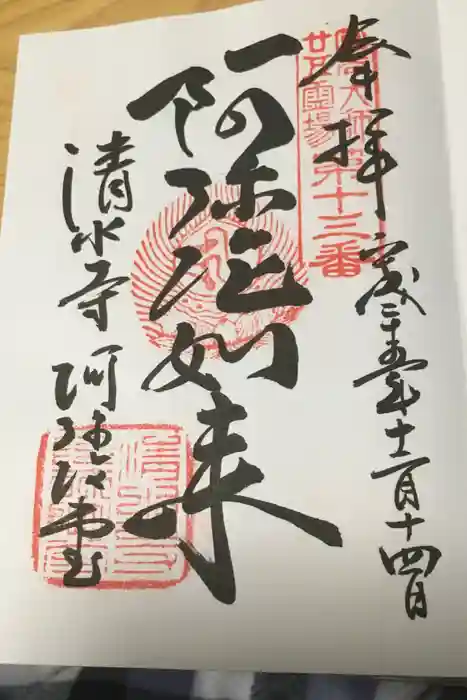 奉拝
平成二十五年十二月十四日
圓光大師
廿五靈場
第十三番
阿弥陀如来
清水寺 阿弥陀堂